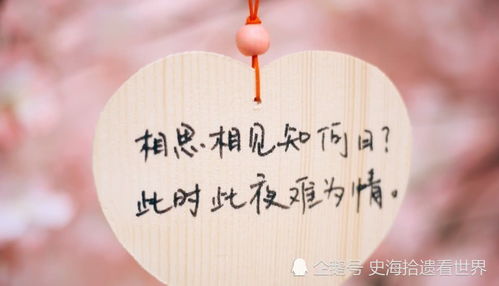 相思相见知何日?
此时此夜难为情。
企鹅号 史海拾遗看世界